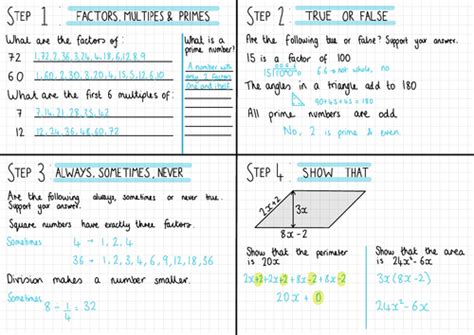 STEP 1: FACTORS, MULTIPES & PRIMES
What are the factors of:
72 1,72,2,36,3,24,4,18,6,12,8,9
60 1,60,2,30,3,20,4,15,5,12,6,10
What are the first 6 multiples of:
7 7,14,21,28,35,42
12 12,24,36,48,60,72
What is a
prime number?
A number with
only 2 factors
one and itself
STEP 2: TRUE OR FALSE
Are the following true or false? Support your answer.
15 is a factor of 100
6.6 → not whole, no
The angles in a triangle add to 180
90+45+45 = 180
All prime numbers are odd
No, 2 is prime & even.
STEP 3: ALWAYS, SOMETIMES, NEVER
Are the following always, sometimes or never true.
Support your answer.
Square numbers have exactly three factors.
Sometimes 4 → 1, 2, 4
36 → 1, 2, 3, 4, 6, 9, 12, 18, 36
Division makes a number smaller.
Sometimes 8 ÷ 1/4 = 32
STEP 4: SHOW THAT
2x+2
3x
8x-2
Show that the perimeter
is 20x
2x+2+2x+2+8x-2+8x-2
20x + 0
Show that the area
is 24x²-6x
3x(8x-2)
24x²-6x